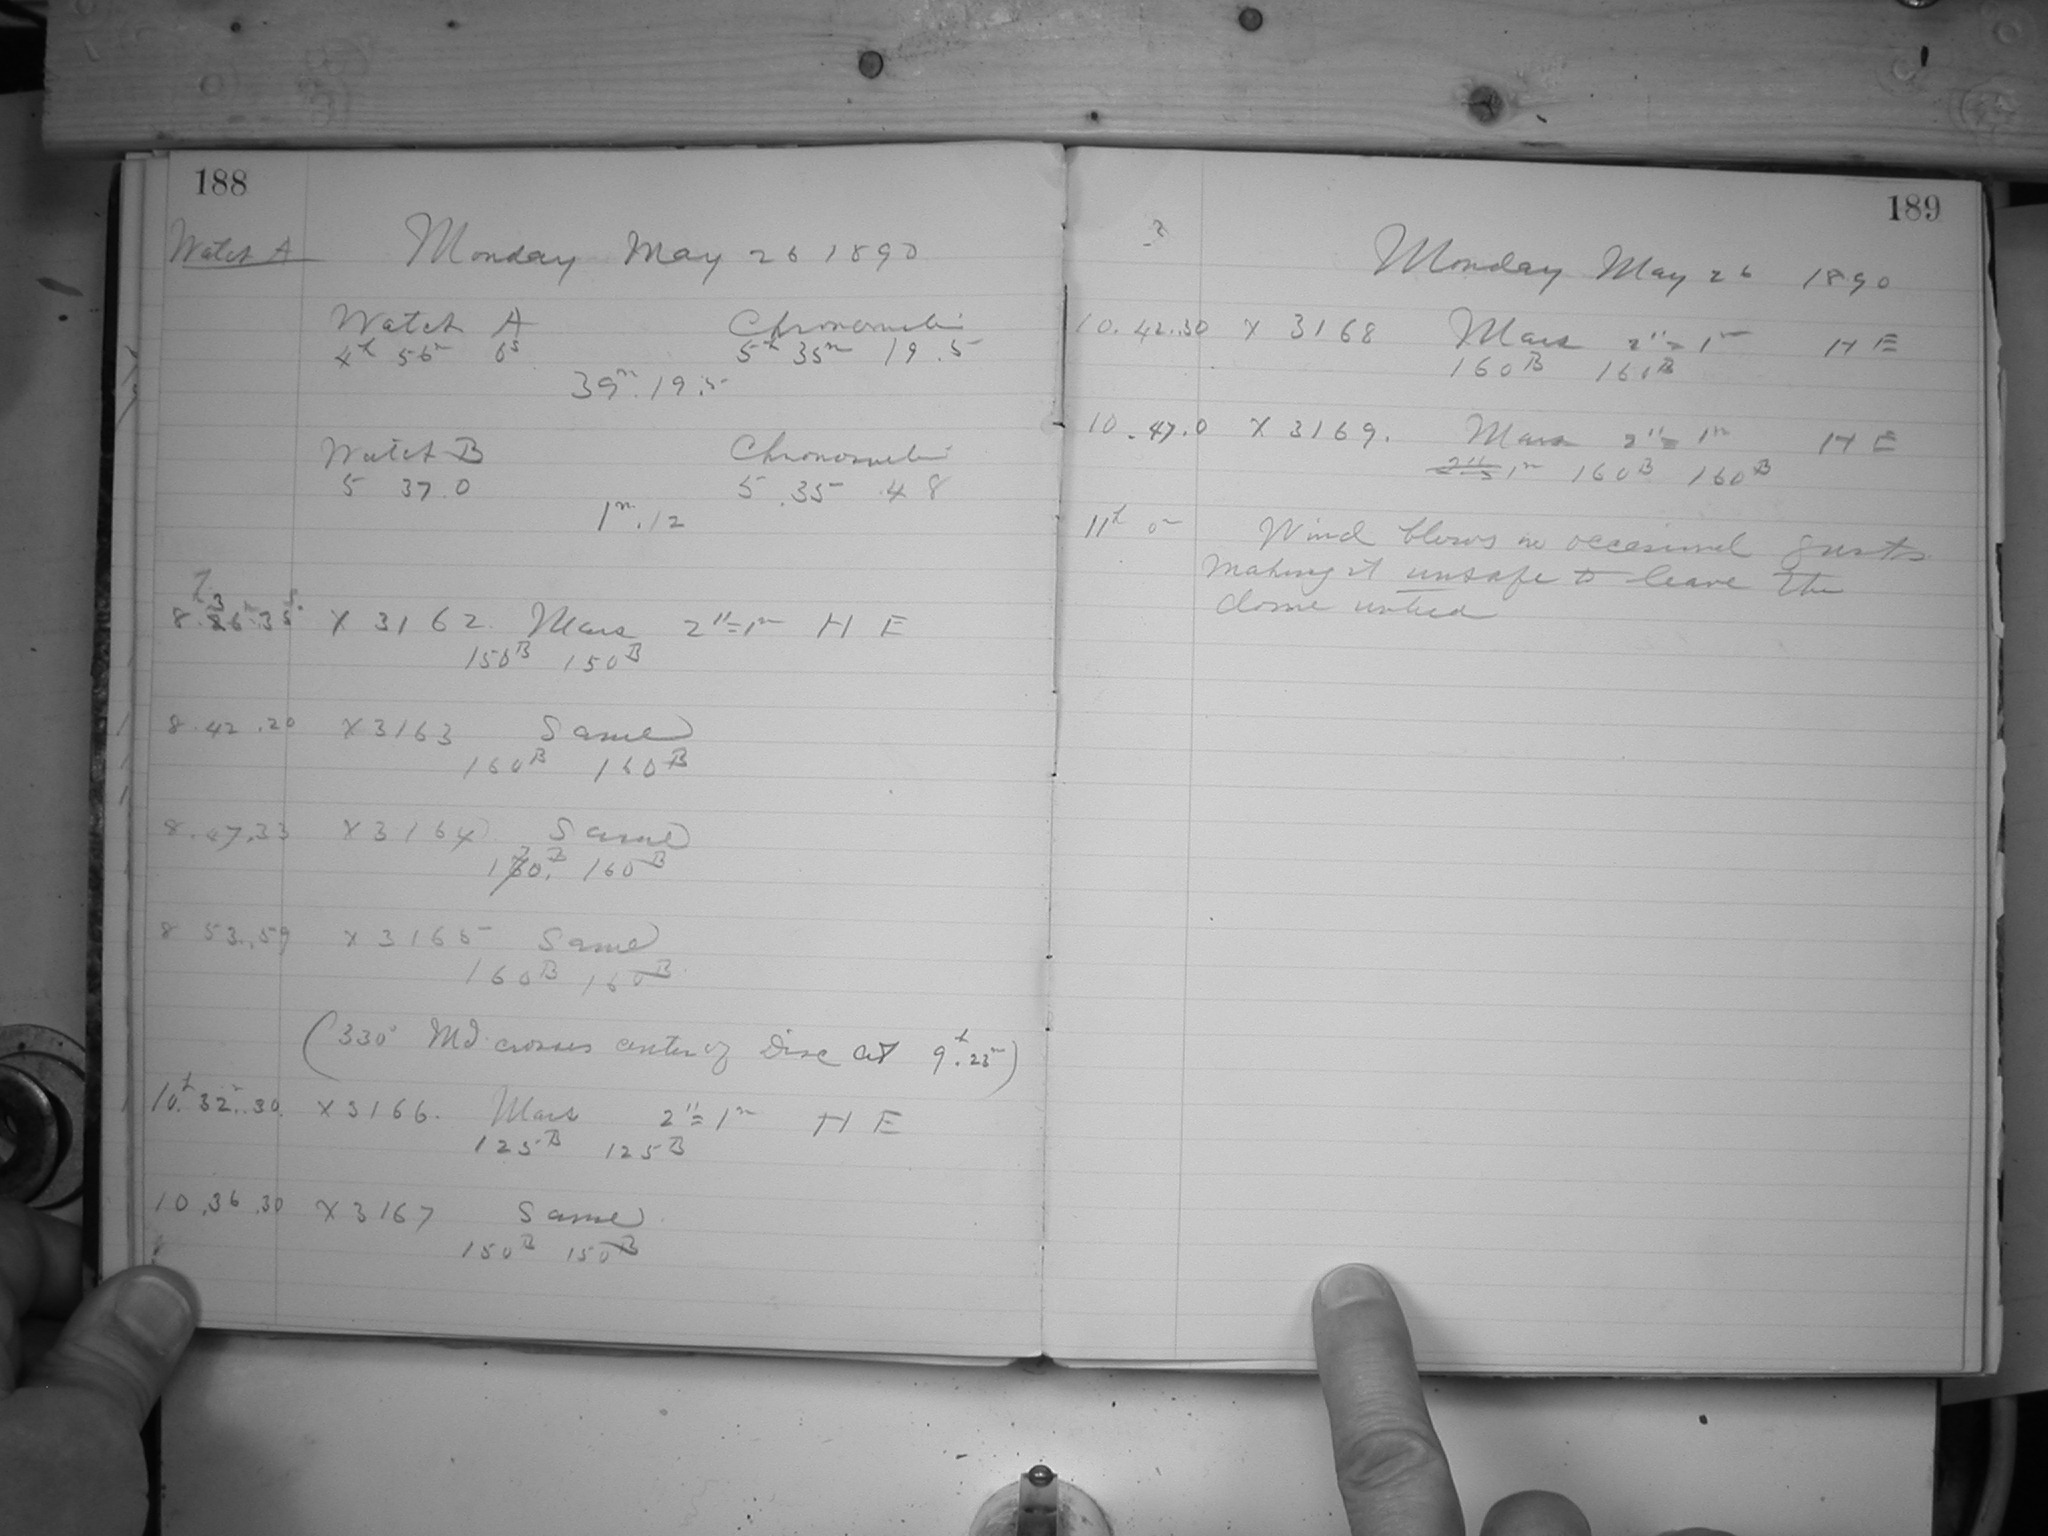 188
Watch A
Monday May 26 1890
Watch A Chronometer
4h 56m 0s 5h 35m 19.5
39m.19.5
Watch B Chronometer
5 37.0 5.35 48
1m.12
8h.36m.35s. X 3162. Mars 2"=1m H E
150B 150B
8.42.20 X 3163 Same
160B 160B
8.47.33 X 3164 Same
160B 160B
8 53.59 X 3165 Same
160B 160B
(330° Md crosses center of Disc at 9h.23m)
10h.32m.30. X 3166. Mars 2"=1m H E
125B 125B
10.36.30 X 3167 Same
150B 150B
189
Monday May 26 1890
10.42.30 X 3168 Mars 2"=1m H E
160B 160B
10.47.0 X 3169. Mars 2"=1m H E
1m 160B 160B
11h 0m Wind blows in occasional gusts
making it unsafe to leave the
dome untied